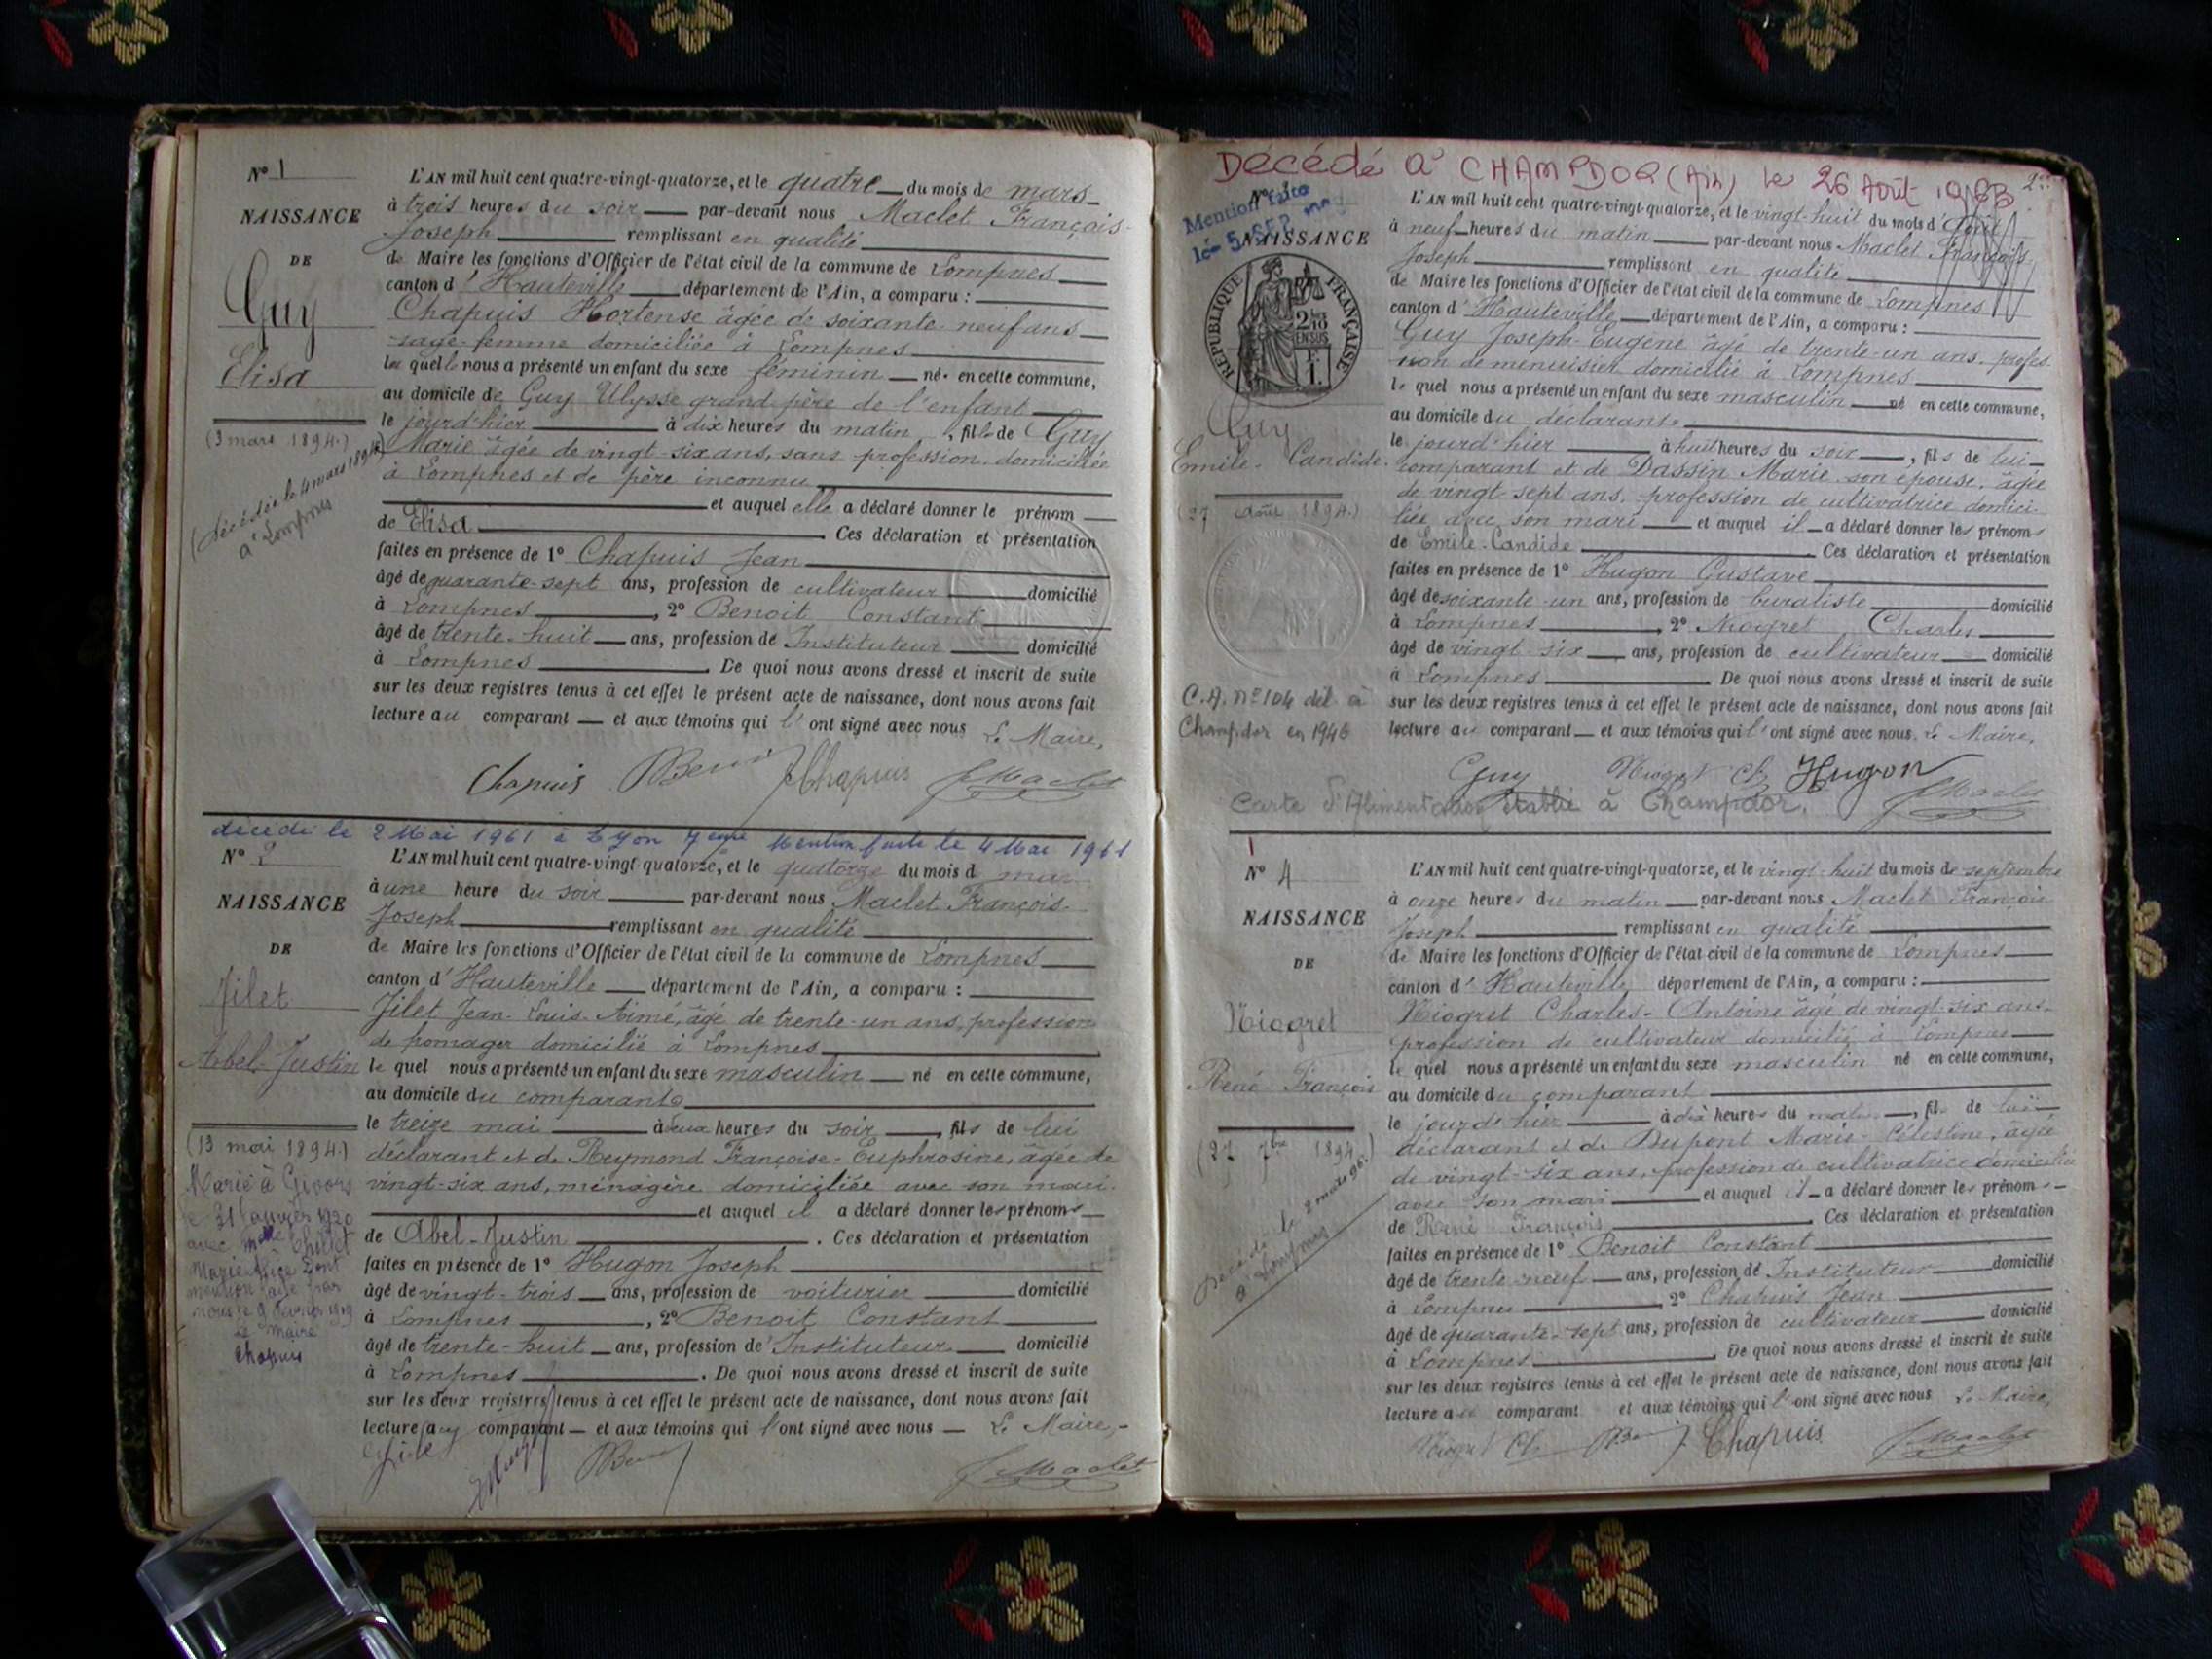 N° 1
NAISSANCE
DE
Guy
Elisa
(3 mars 1894.)
(Décédée le 4 mars 1894
à Lompnes
L'AN mil huit cent quatre-vingt-quatorze, et le quatre du mois de mars
à trois heures du soir par-devant nous Maclet François-
Joseph remplissant en qualité
de Maire les fonctions d'Officier de l'état civil de la commune de Lompnes
canton d'Hauteville département de l'Ain, a comparu :
Chapuis Hortense âgée de soixante-neuf ans
sage-femme domiciliée à Lompnes
la quelle nous a présenté un enfant du sexe féminin né en cette commune,
au domicile de Guy Ulysse grand-père de l'enfant
le jourd'hier à dix heures du matin, fille de Guy
Marie âgée de vingt-six ans, sans profession, domiciliée
à Lompnes et de père inconnu
et auquel elle a déclaré donner le prénom
de Elisa Ces déclaration et présentation
faites en présence de 1° Chapuis Jean
âgé de quarante-sept ans, profession de cultivateur domicilié
à Lompnes, 2° Benoit Constant
âgé de trente-huit ans, profession de Instituteur domicilié
à Lompnes. De quoi nous avons dressé et inscrit de suite
sur les deux registres tenus à cet effet le présent acte de naissance, dont nous avons fait
lecture au comparant et aux témoins qui l'ont signé avec nous Le Maire,
Chapuis J Chapuis Maclet
décédé le 2 Mai 1961 à Lyon 7ème Mention faite le 4 Mai 1961
N° 2
NAISSANCE
DE
Jilet
Abel-Justin
(13 mai 1894.)
Marié à Givors
le 31 janvier 1920
avec Melle
mention faite par
nous le 9 février
Le Maire
Chapuis
L'AN mil huit cent quatre-vingt-quatorze, et le quatorze du mois d mai
à une heure du soir par-devant nous Maclet François-
Joseph remplissant en qualité
de Maire les fonctions d'Officier de l'état civil de la commune de Lompnes
canton d'Hauteville département de l'Ain, a comparu :
Jilet Jean-Louis-Aimé, âgé de trente-un ans, profession
de fromager domicilié à Lompnes
le quel nous a présenté un enfant du sexe masculin né en cette commune,
au domicile du comparant
le treize mai à deux heures du soir, fils de lui
déclarant et de Reymond Françoise-Euphrosine, âgée de
vingt-six ans, ménagère domiciliée avec son mari.
et auquel il a déclaré donner les prénoms
de Abel-Justin. Ces déclaration et présentation
faites en présence de 1° Hugon Joseph
âgé de vingt-trois ans, profession de voiturier domicilié
à Lompnes, 2° Benoit Constant
âgé de trente-huit ans, profession de Instituteur domicilié
à Lompnes. De quoi nous avons dressé et inscrit de suite
sur les deux registres tenus à cet effet le présent acte de naissance, dont nous avons fait
lecture au comparant et aux témoins qui l'ont signé avec nous Le Maire,
Maclet
Décédé à CHAMPDOR (Ain) le 26 Août 1983
Mention faite
le 5 SEP.
N°
NAISSANCE
RÉPUBLIQUE FRANÇAISE
2/10 EN SUS
1 F.
Guy
Emile-Candide.
(27 Août 1894.)
C.A. N° 104 dél. à
Champdor en 1946
L'AN mil huit cent quatre-vingt-quatorze, et le vingt-huit du mois d'Août
à neuf heures du matin par-devant nous Maclet François-
Joseph remplissant en qualité
de Maire les fonctions d'Officier de l'état civil de la commune de Lompnes
canton d'Hauteville département de l'Ain, a comparu :
Guy Joseph-Eugène âgé de trente-un ans, profes-
sion de menuisier domicilié à Lompnes
le quel nous a présenté un enfant du sexe masculin né en cette commune,
au domicile du déclarant
le jourd'hier à huit heures du soir, fils de lui
comparant et de Dassin Marie son épouse, âgée
de vingt-sept ans, profession de cultivatrice domici-
liée avec son mari et auquel il a déclaré donner les prénoms
de Emile-Candide Ces déclaration et présentation
faites en présence de 1° Hugon Gustave
âgé de soixante-un ans, profession de buraliste domicilié
à Lompnes, 2° Niogret Charles
âgé de vingt-six ans, profession de cultivateur domicilié
à Lompnes. De quoi nous avons dressé et inscrit de suite
sur les deux registres tenus à cet effet le présent acte de naissance, dont nous avons fait
lecture au comparant et aux témoins qui l'ont signé avec nous. Le Maire,
Guy Niogret Ch Hugon Maclet
Carte d'Alimentation établie à Champdor.
N° 4
NAISSANCE
DE
Niogret
René-François
(27 7bre 1894.)
Décédé le 2 mars 96
à Lompnes
L'AN mil huit cent quatre-vingt-quatorze, et le vingt-huit du mois de septembre
à onze heures du matin par-devant nous Maclet François
Joseph remplissant en qualité
de Maire les fonctions d'Officier de l'état civil de la commune de Lompnes
canton d'Hauteville département de l'Ain, a comparu :
Niogret Charles-Antoine âgé de vingt-six ans,
profession de cultivateur domicilié à Lompnes
le quel nous a présenté un enfant du sexe masculin né en cette commune,
au domicile du comparant
le jour de hier à dix heures du matin, fils de lui
déclarant et de Dupont Marie-Célestine, âgée
de vingt-six ans, profession de cultivatrice domiciliée
avec son mari et auquel il a déclaré donner les prénoms
de René François Ces déclaration et présentation
faites en présence de 1° Benoit Constant
âgé de trente-neuf ans, profession de Instituteur domicilié
à Lompnes 2° Chapuis Jean
âgé de quarante-sept ans, profession de cultivateur domicilié
à Lompnes. De quoi nous avons dressé et inscrit de suite
sur les deux registres tenus à cet effet le présent acte de naissance, dont nous avons fait
lecture au comparant et aux témoins qui l'ont signé avec nous Le Maire,
Niogret Ch J Chapuis Maclet